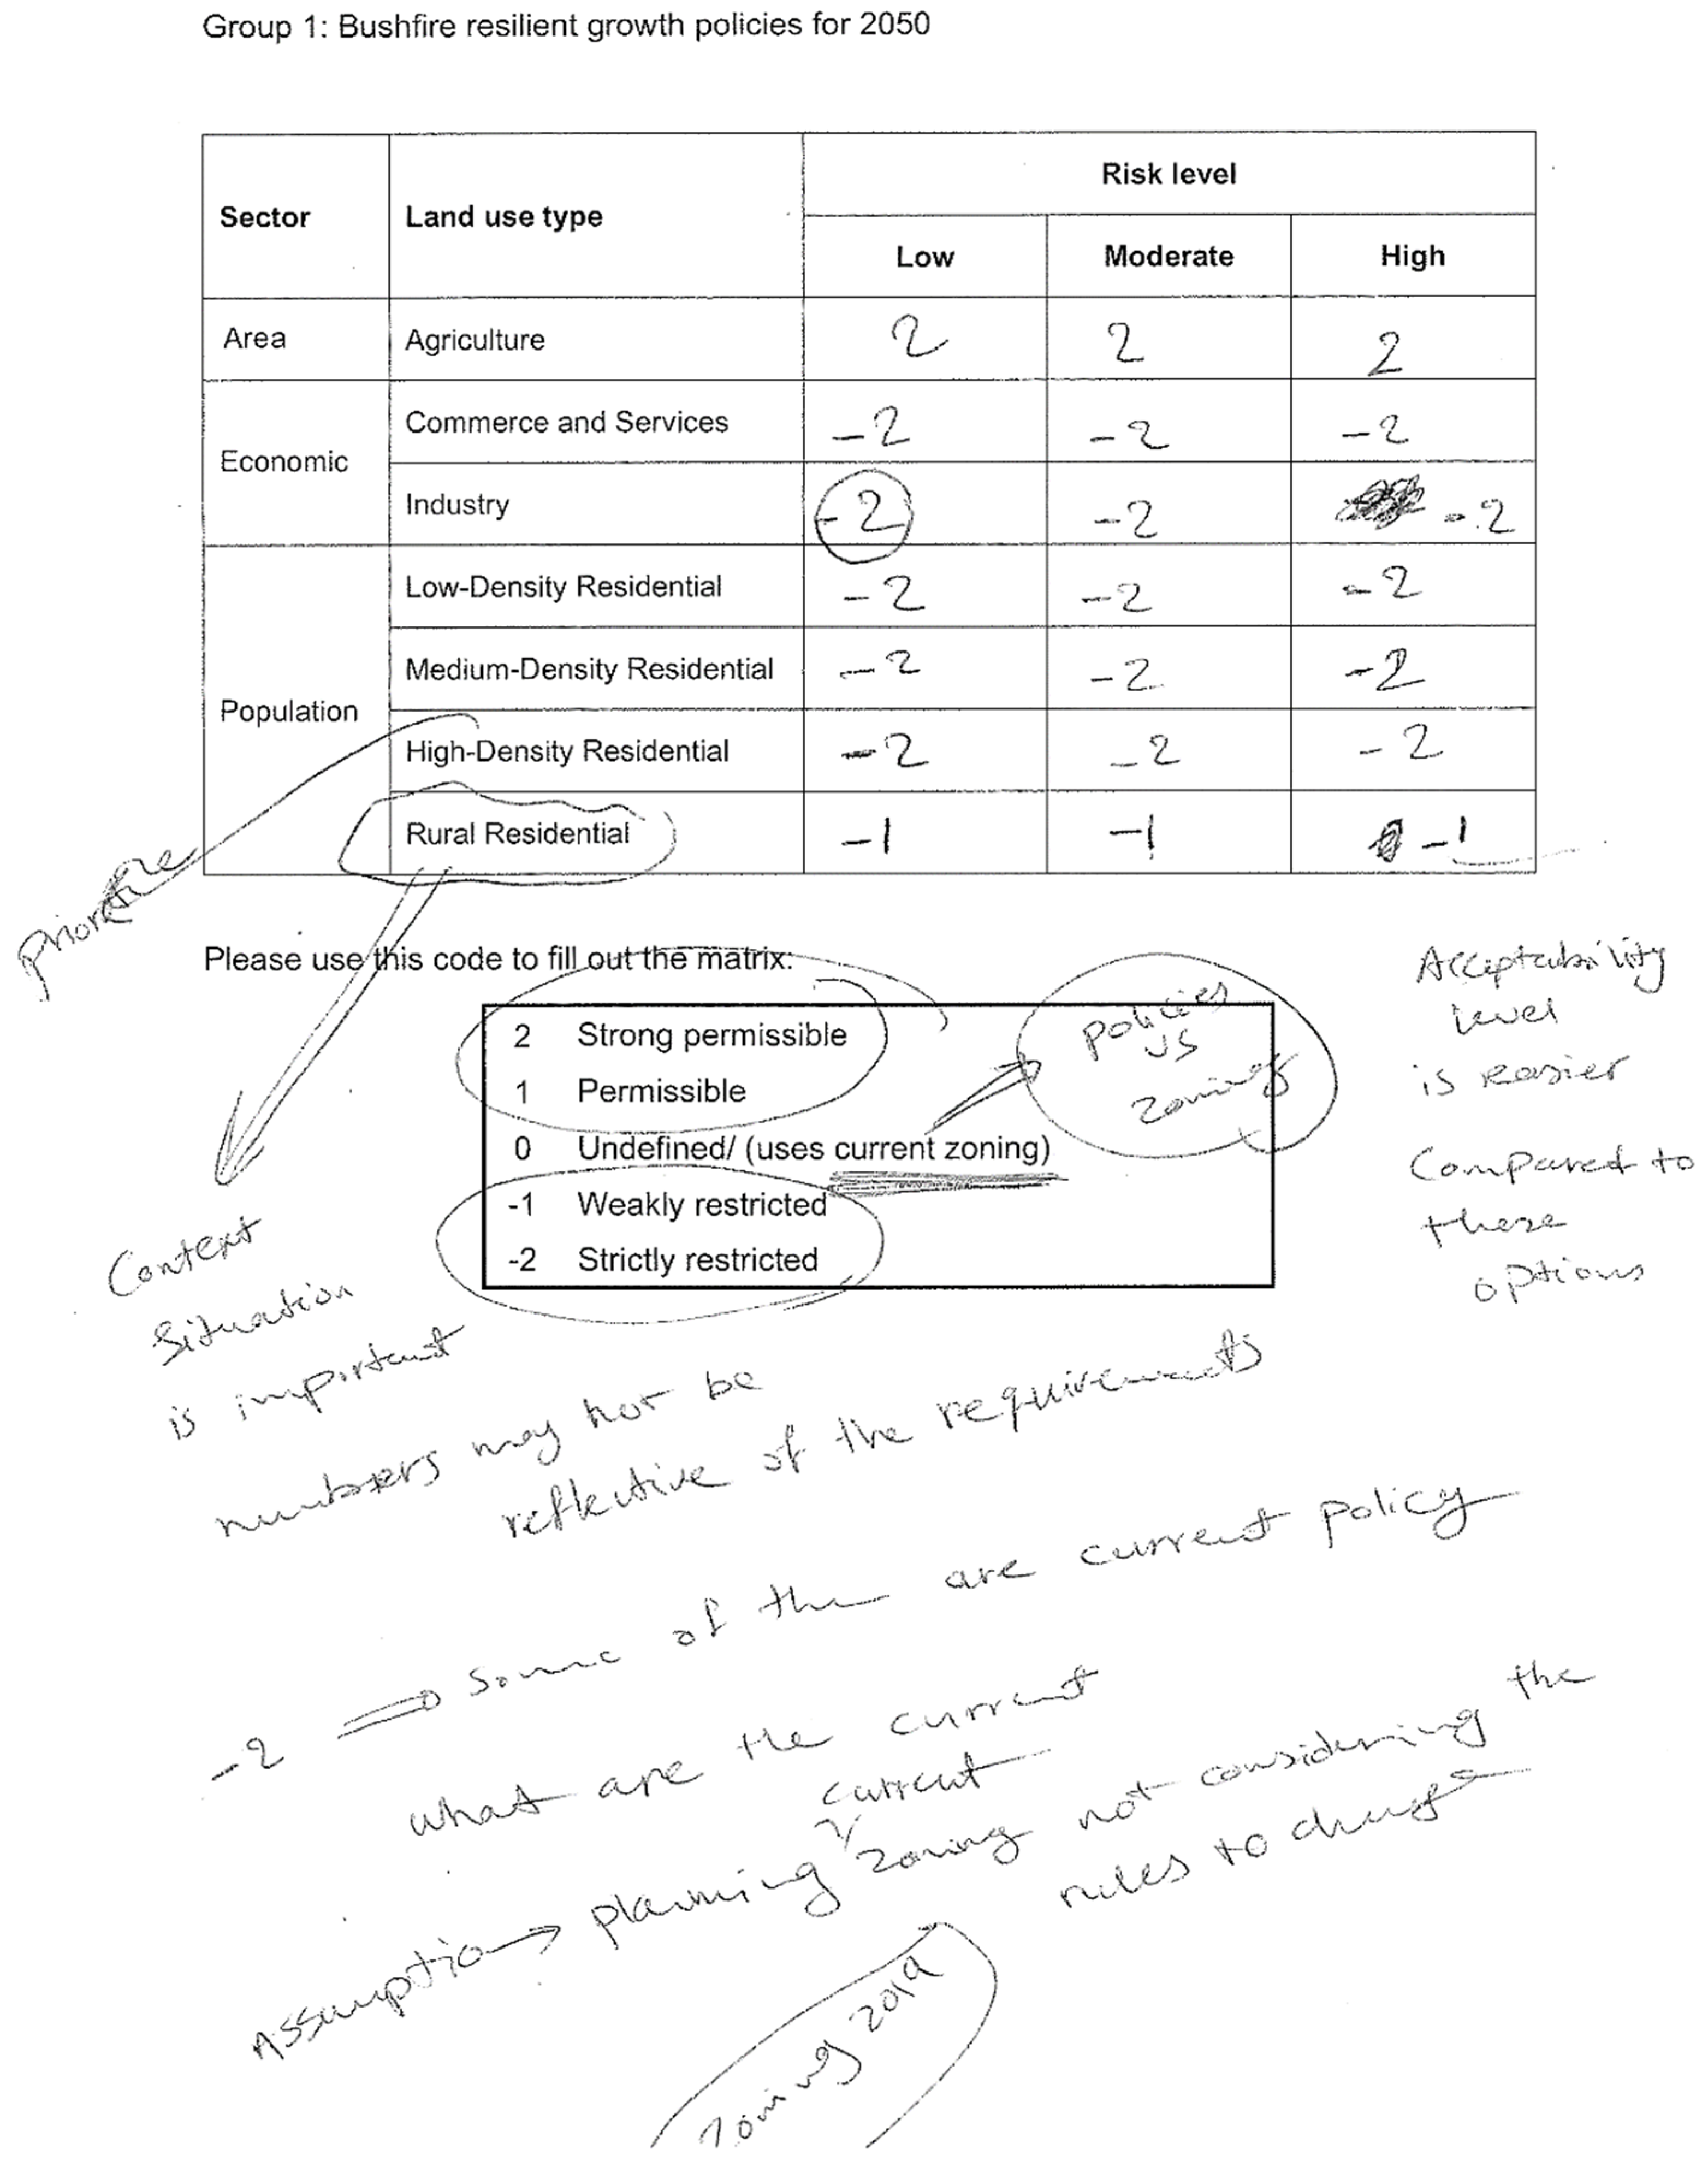 Group 1: Bushfire resilient growth policies for 2050
Sector Land use type Risk level
Low Moderate High
Area Agriculture 2 2 2
Economic Commerce and Services -2 -2 -2
Industry -2 -2 -2
Population Low-Density Residential -2 -2 -2
Medium-Density Residential -2 -2 -2
High-Density Residential -2 -2 -2
Rural Residential -1 -1 -1
Please use this code to fill out the matrix:
2 Strong permissible
1 Permissible
0 Undefined/ (uses current zoning)
-1 Weakly restricted
-2 Strictly restricted
policies
vs
zoning
Acceptability
level
is easier
Compared to
these
options
Context
Situation
is important
numbers may not be
reflective of the requirements
-2 ⇒ Some of the are current policy
what are the current
current
Assumption → planning zoning not considering the
rules to change
zoning 2019